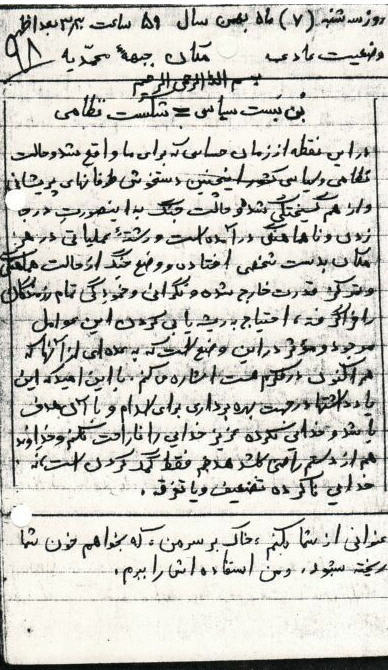 روز سه شنبه (۷) ماه بهمن سال ۵۹ ساعت ۳/۴۰ بعد از ظهر
وضعیت عادی مکان جبههٔ محمدیه
۹۸
بسم الله الرحمن الرحیم
بن بست سیاسی = شکست نظامی
در این نقطه از زمان حساس که برای ما واقع شد و حالت
نظامی و سیاسی کشور اینچنین دستخوش طوفانهای پریشانی
و از هم گسیختگی شد و حالت جنگ به اینصورت درجا
زدن و ناهماهنگی در آمده است و رشتهٔ عملیاتی در هر
مکان بدست شخصی افتاده و وضع جنگ از حالت هماهنگی
و تمرکز قدرت خارج شده و نگرانی و خمودگی تمام رزمندگان
را فرا گرفته، احتیاج به ریشه یابی کردن این عوامل
موجود و مؤثر در این وضع است که به عده‌ای از آنها که
هم اکنون در فکرم هست اشاره میکنم. با این امید که این
یادداشتها در جهت بهره برداری برای اسلام و با آن هدف
باشد و خدای نکرده عزیز خدایی را ناراحت نکنم و خداوند
هم از دستم راضی باشد هدفم فقط کمک کردن است، نه
خدایی ناکرده تضعیف و یا تفرقه.
عنوانی از شما بکنم، خاک بر سر من، که بخواهم خون شما
ریخته شود، و من استفاده اش را ببرم.